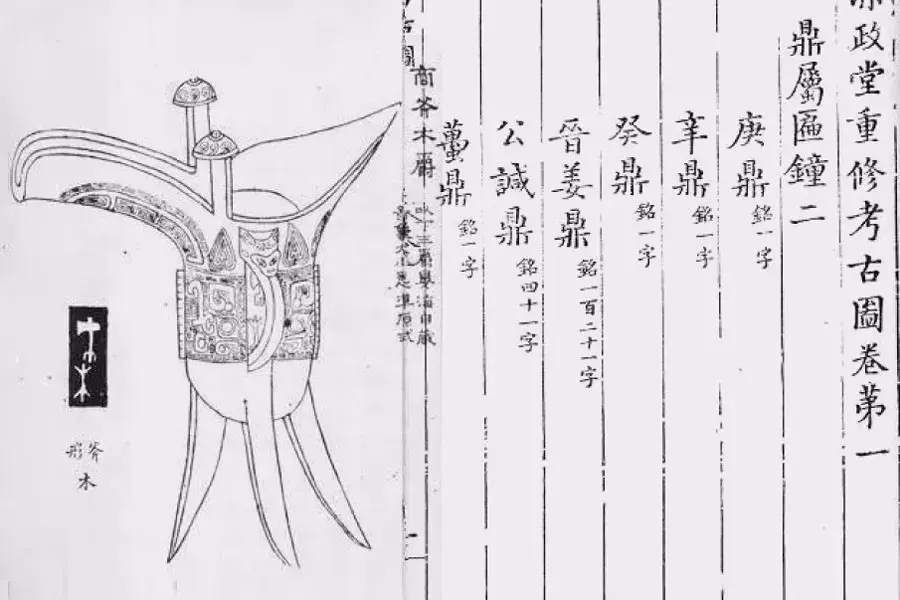 政堂重修考古圖卷苐一
鼎屬 鐘二
庚鼎 銘一字
辛鼎 銘一字
癸鼎 銘一字
晉姜鼎 銘一百二十一字
公諴鼎 銘四十一字
鼎 銘一字
古圖
商斧木爵
大小悉準原式
斧木
形